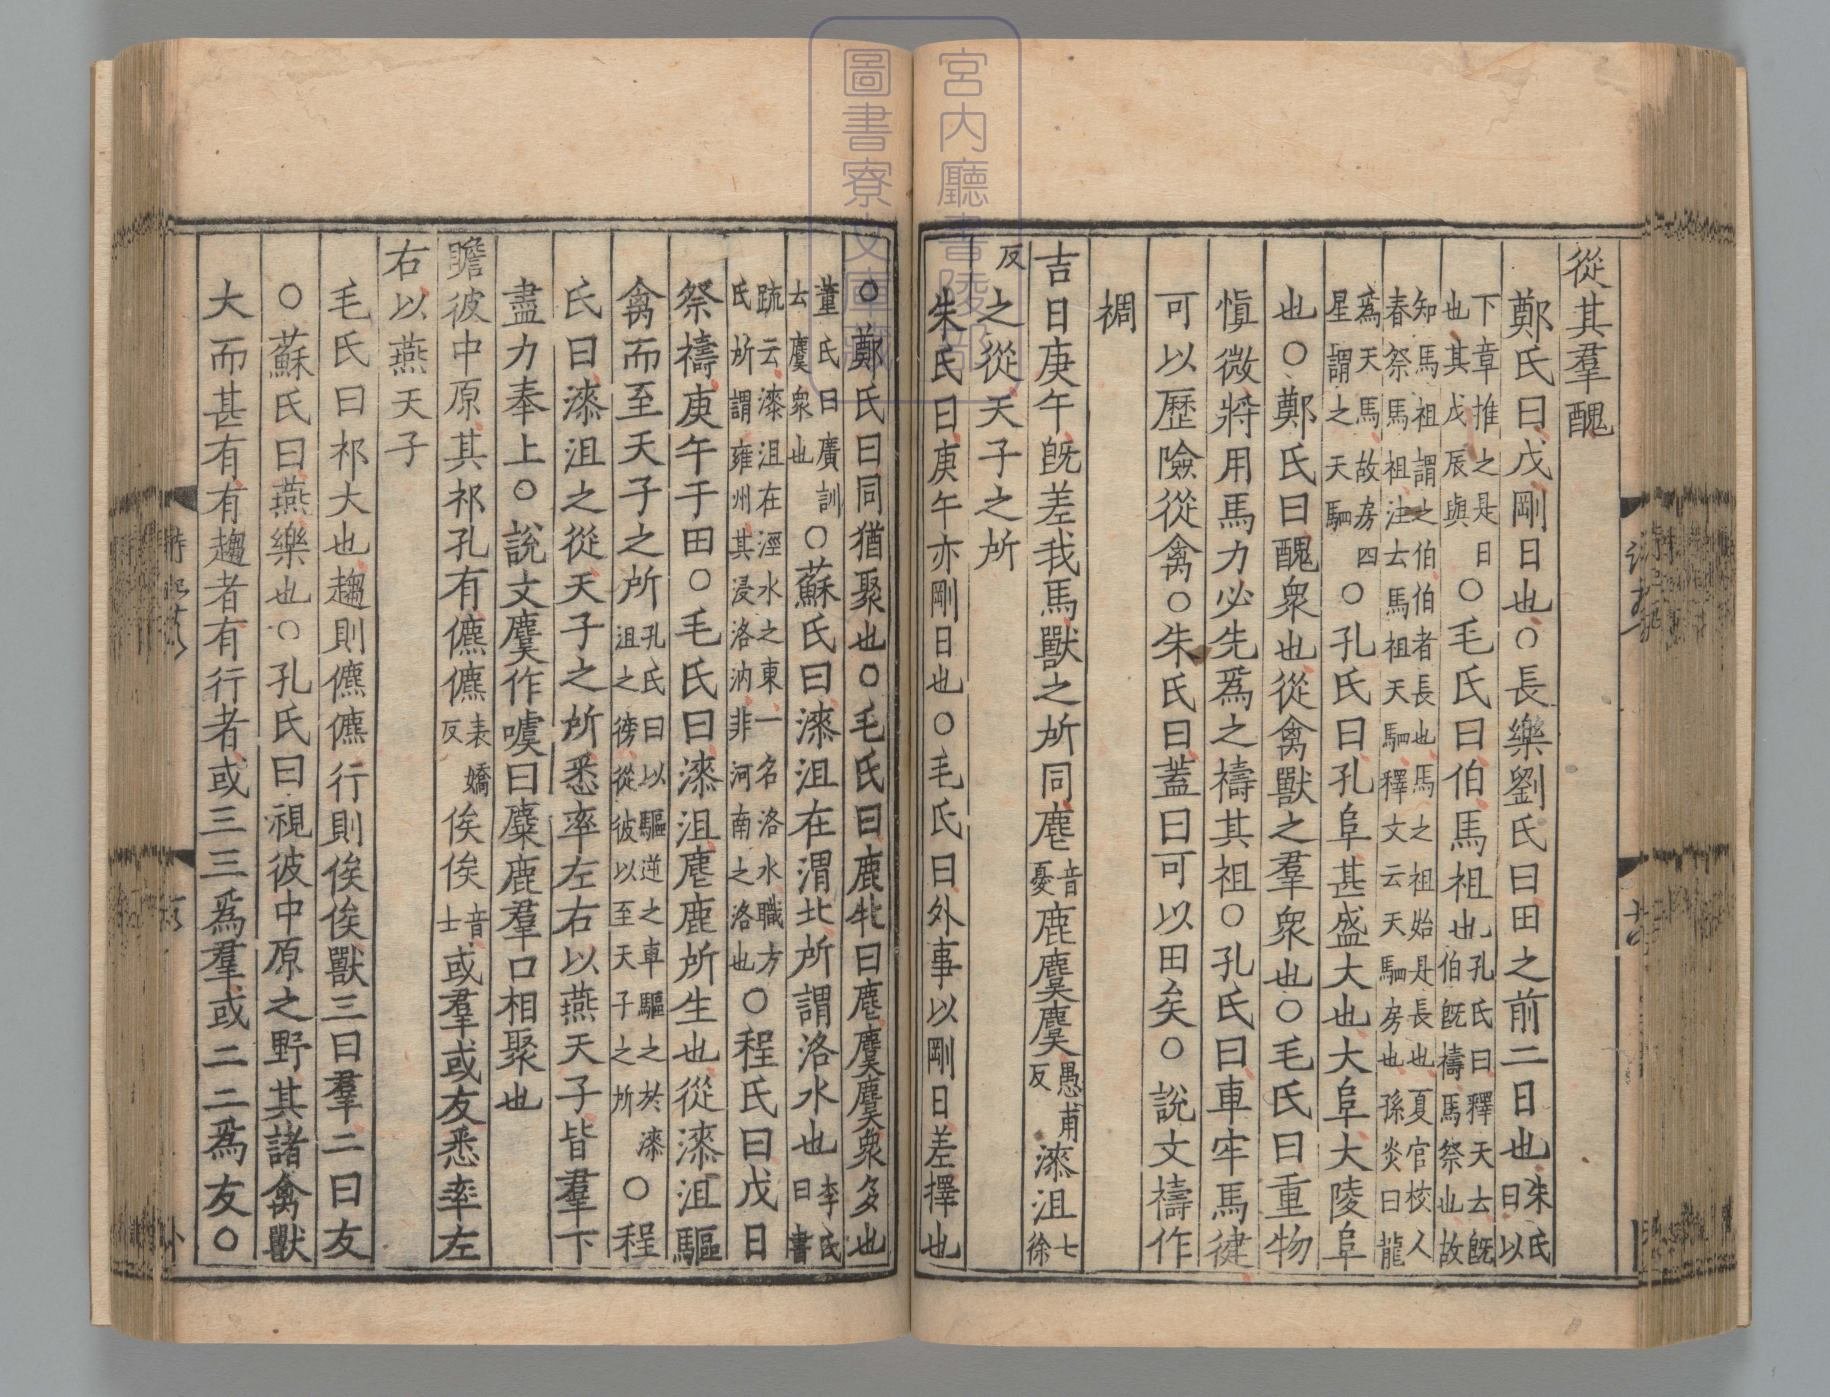 從其羣醜
鄭氏曰戊剛日也○長樂劉氏曰田之前二日也朱氏曰以
下章推之是日也其戊辰與○毛氏曰伯馬祖也孔氏曰釋天云既伯既禱馬祭也故
知馬祖謂之伯伯者長也馬之祖始是長也夏官校人春祭馬祖注云馬祖天駟釋文云天駟房也孫炎曰龍
爲天馬故房四星謂之天駟○孔氏曰孔阜甚盛大也大阜大陵阜
也○鄭氏曰醜衆也從禽獸之羣衆也○毛氏曰重物
愼微將用馬力必先爲之禱其祖○孔氏曰車牢馬健
可以歷險從禽○朱氏曰蓋曰可以田矣○說文禱作
禂
吉日庚午旣差我馬獸之所同麀音憂鹿麌麌愚甫反漆沮七徐
反之從天子之所
朱氏曰庚午亦剛日也○毛氏曰外事以剛日差擇也
○鄭氏曰同猶聚也○毛氏曰鹿牝曰麀麌麌衆多也
董氏曰廣訓云麌衆也○蘇氏曰漆沮在渭北所謂洛水也李氏曰書
䟽云漆沮在涇水之東一名洛水職方氏所謂雍州其浸洛汭非河南之洛也○程氏曰戊日
祭禱庚午于田○毛氏曰漆沮麀鹿所生也從漆沮驅
禽而至天子之所孔氏曰以驅逆之車驅之於漆沮之徬從彼以至天子之所○程
氏曰漆沮之從天子之所悉率左右以燕天子皆羣下
盡力奉上○說文麌作噳曰麋鹿羣口相聚也
瞻彼中原其祁孔有儦儦表嬌反俟俟音士或羣或友悉率左
右以燕天子
毛氏曰祁大也趨則儦儦行則俟俟獸三曰羣二曰友
○蘇氏曰燕樂也○孔氏曰視彼中原之野其諸禽獸
大而甚有有趨者有行者或三三爲羣或二二爲友○
宮内廳書陵部
圖書寮文庫藏